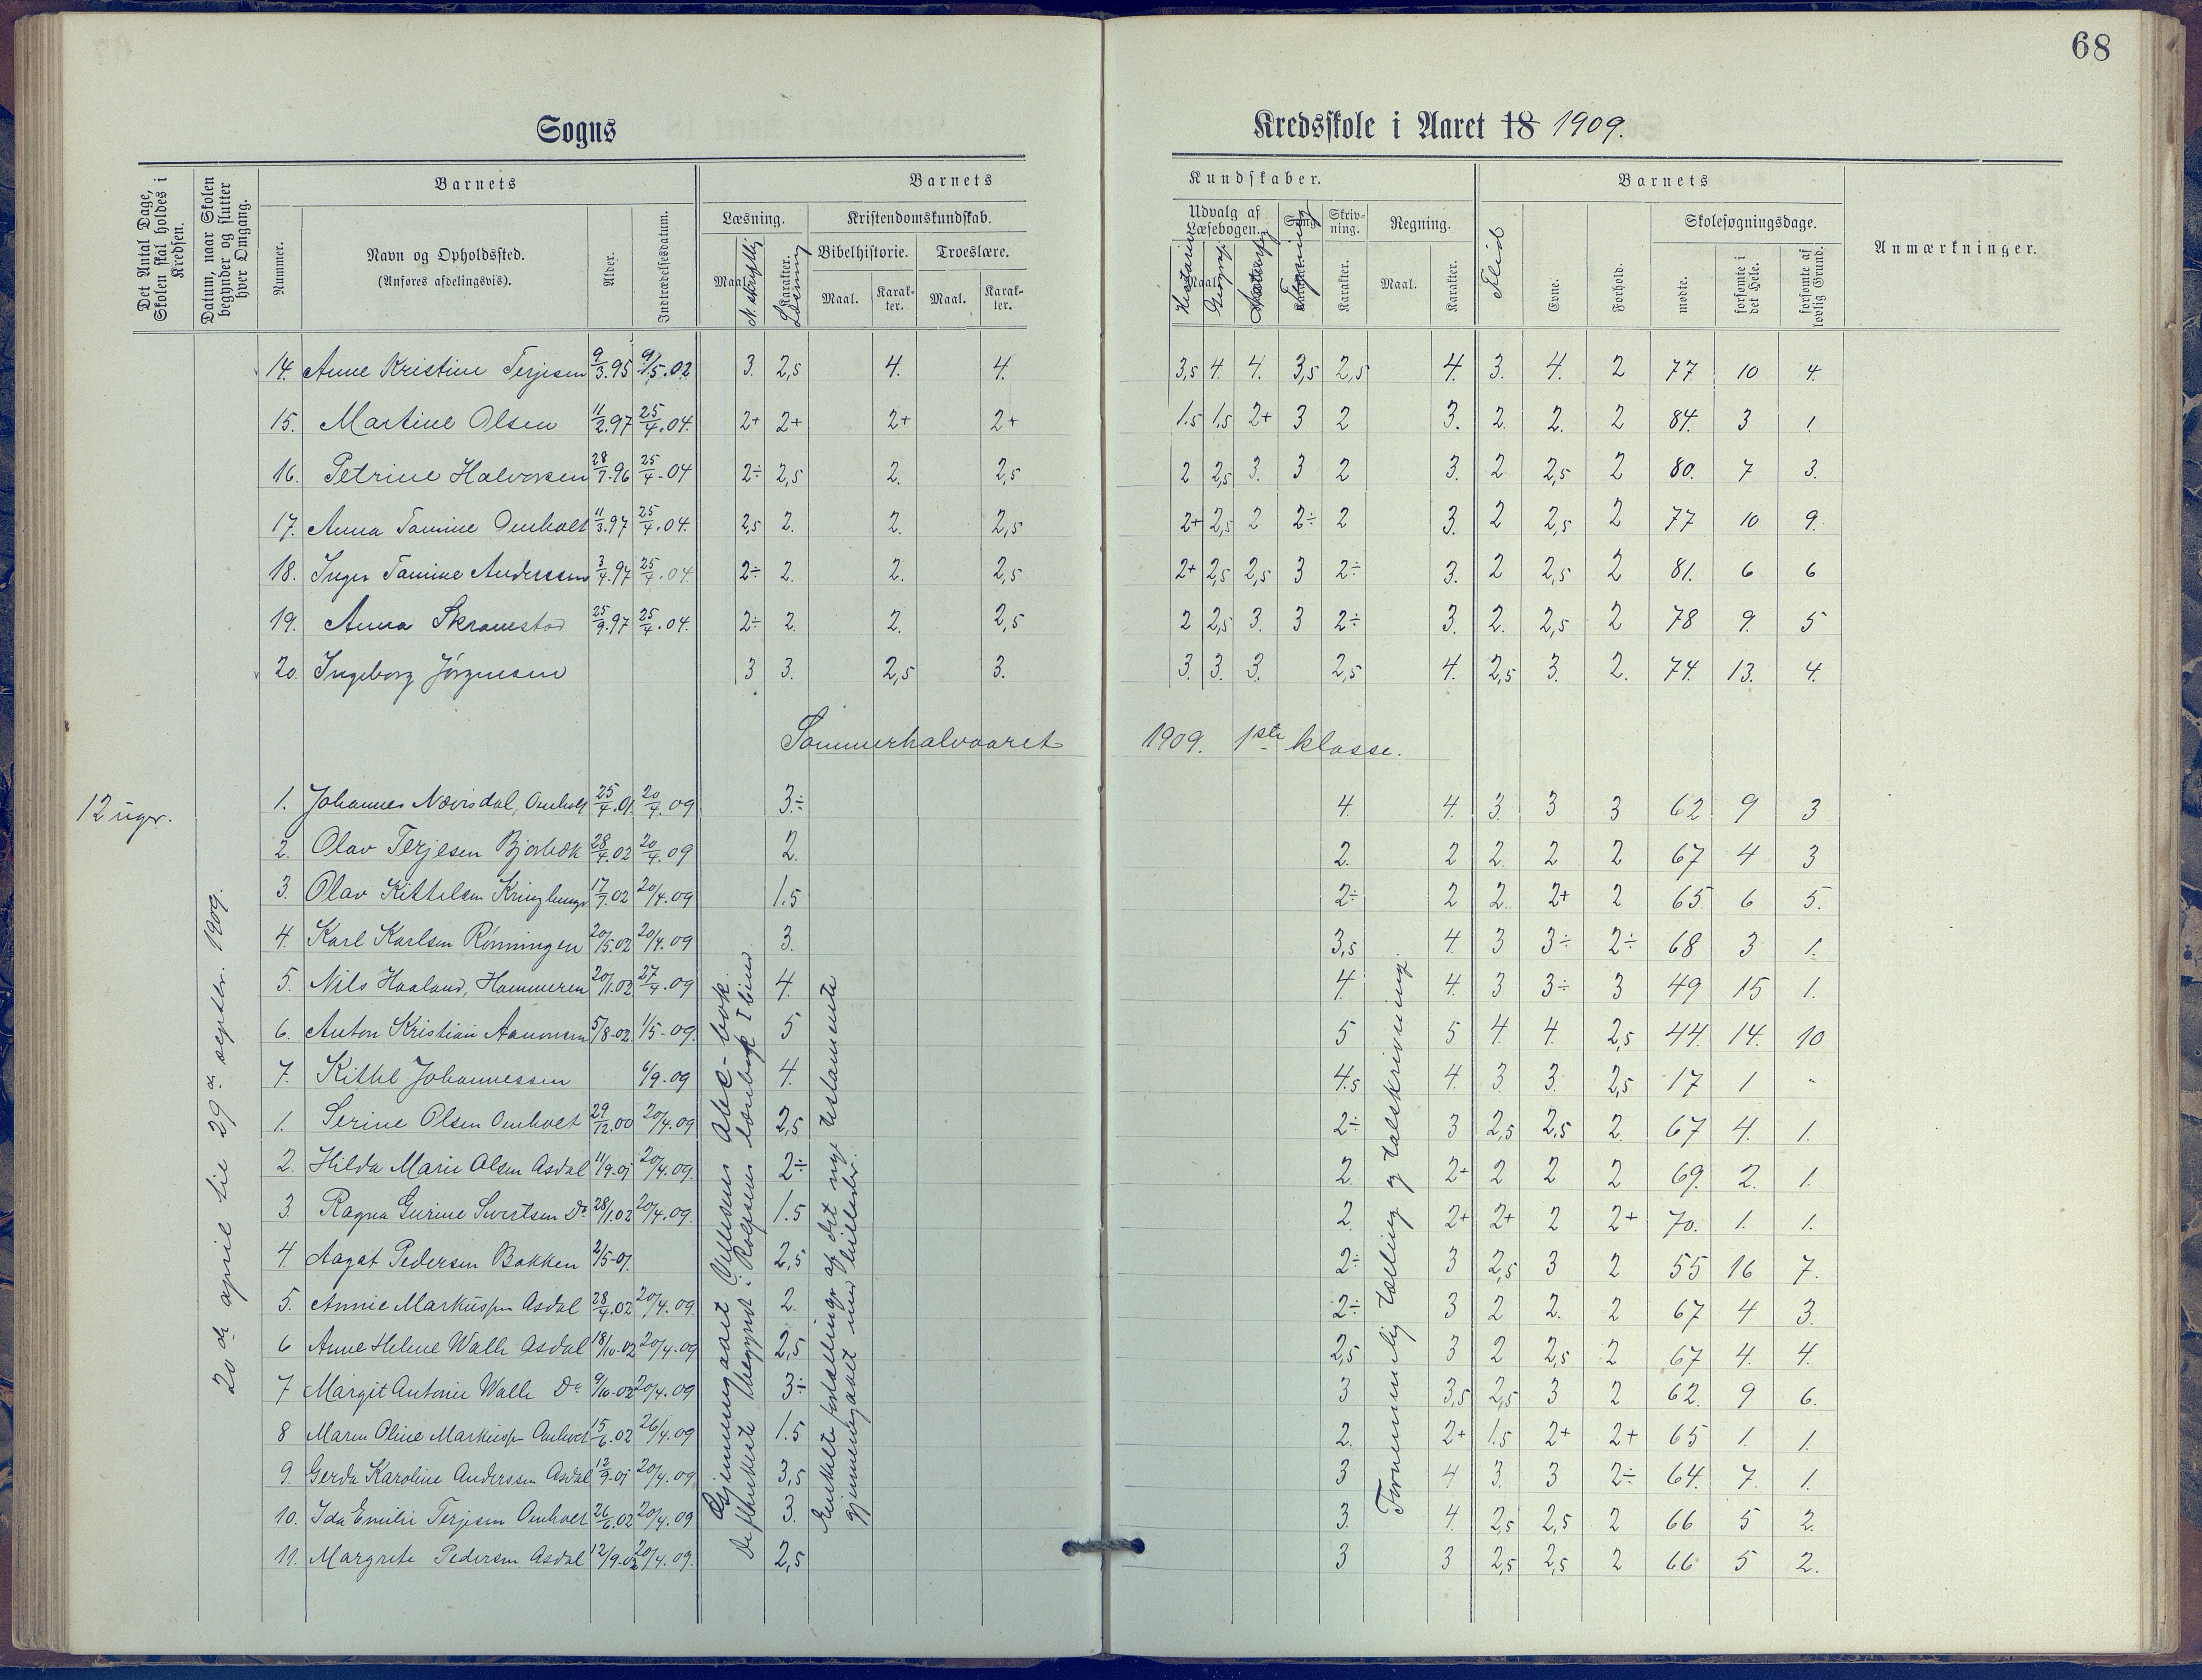 68
Sogns
Kredsskole i Aaret 18 1909.
Det Antal Dage, Skolen skal holdes i Kredsen.
Datum, naar Skolen begynder og slutter hver Omgang.
Barnets
Nummer.
Navn og Opholdssted.
(Anføres afdelingsvis).
Alder.
Indtrædelsesdatum.
Barnets
Læsning.
Maal. N. skriftlig
Karakter. Læsning
Kristendomskundskab.
Bibelhistorie.
Troeslære.
Maal.
Karakter.
Maal.
Karakter.
Kundskaber.
Udvalg af Læsebogen.
Maal.
Historie
Geografi
Sang.
Karakter.
Skrivning.
Karakter.
Regning.
Maal.
Karakter.
Barnets
Flid
Evne.
Forhold.
Skolesøgningsdage.
mødte.
forsømte i det Hele.
forsømte af lovlig Grund.
Anmærkninger.
14. Anne Kristine Terjesen 9/3.95 9/5.02 3. 2,5 4. 4. 3,5 4. 4. 3,5 2,5 4. 3. 4. 2 77 10 4.
15. Martine Olsen 11/2.97 25/4.04. 2+ 2+ 2+ 2+ 1.5 1,5 2+ 3 2 3. 2. 2. 2 84. 3 1.
16. Petrine Halvorsen 28/7.96 25/4-04 2÷ 2,5 2. 2,5 2 2,5 3. 3 2 3. 2 2,5 2 80. 7 3.
17. Anna Tomine Omholt 11/3.97 25/4.04. 2,5 2. 2. 2,5 2+ 2,5 2 2÷ 2 3. 2 2,5 2 77 10 9.
18. Inger Tomine Anderssen 3/4.97 25/4.04. 2÷ 2. 2. 2,5 2+ 2,5 2,5 3 2÷ 3. 2 2,5 2 81. 6 6
19. Anna Skramestad 25/9.97 25/4.04. 2÷ 2. 2. 2,5 2 2,5 3. 3 2÷ 3. 2. 2,5 2 78 9. 5
20. Ingeborg Jörgensen 3 3. 2,5 3. 3. 3. 3. 2,5 4. 2,5 3. 2. 74. 13. 4.
Sommerhalvaaret 1909. 1ste klasse.
12 uger.
20de april til 29de septbr. 1909.
1. Johannes Nævisdal, Omholt 25/4.01. 20/4.09 3÷ 4. 4. 3. 3 3 62 9 3
2. Olav Terjesen Bjorbæk 28/4.02 20/4.09 2. 2. 2 2. 2 2 67 4 3
3. Olav Kittelsen 17/7.02 20/4.09 1.5 2÷ 2 2. 2+ 2 65. 6 5.
4. Karl Karlsen Rönningen 20/5.02 20/4.09 3. 3,5 4. 3 3÷ 2÷ 68 3 1.
5. Nils Haaland, Hammeren 20/1.02 27/4.09 4. 4. 4. 3 3÷ 3 49 15 1.
6. Anton Kristian Aanonsen 5/8-02. 1/5-09. 5 5 5 4. 4. 2,5 44. 14. 10
7. Kittel Johannessen 6/9-09 4. 4.5 4. 3. 3. 2,5 17 1 -
1. Serine Olsen Omholt 29/12.00 20/4.09 2,5 2÷ 3 2,5 2,5 2. 67 4. 1.
2. Hilda Marie Olsen Asdal 11/9.01 20/4.09. 2÷ 2. 2+ 2 2 2 69. 2. 1.
3. Ragna Gurine Sivertsen Do 28/1.02 20/4.09. 1.5 2. 2+ 2+ 2 2+ 70. 1. 1.
4 Aagot Pedersen Bakken 2/5-01. 2,5 2÷ 3 2,5 3 2 55 16 7.
5. Annie Markussen Asdal 28/4.02 20/4.09. 2. 2÷ 3 2 2. 2 67 4 3.
6 Anne Helene Walle Asdal 18/10-02 20/4-09 2,5 2,5 3 2 2,5 2 67 4. 4.
7 Margit Antonie Walle Do 9/10-02 20/4.09 3÷ 3 3,5 2,5 3 2 62. 9 6.
8 Maren Oline Markussen Omholt 15/6.02 26/4.09 1.5 2. 2+ 1.5 2+ 2+ 65 1. 1.
9. Gerda Karoline Anderssen Asdal 12/9.01 20/4.09 3,5 3 4 3. 3 2÷ 64. 7. 1.
10. Ida Emilie Terjesen Omholt 26/6.02 20/4.09 3. 3. 4. 2,5 2,5 2 66 5 2.
11. Margrete Pedersen Asdal 12/9.02 20/4.09. 2,5 3 3 2,5 2,5 2 66 5 2.
Gjennemgaaet Abc-bok.
De flinkeste begyndt Rolfsens læsebok I bind
Enkelte fortællinger af det nye testamente
gjennemgaaet med billeder.
Fornemmelig tælling og talskrivning.